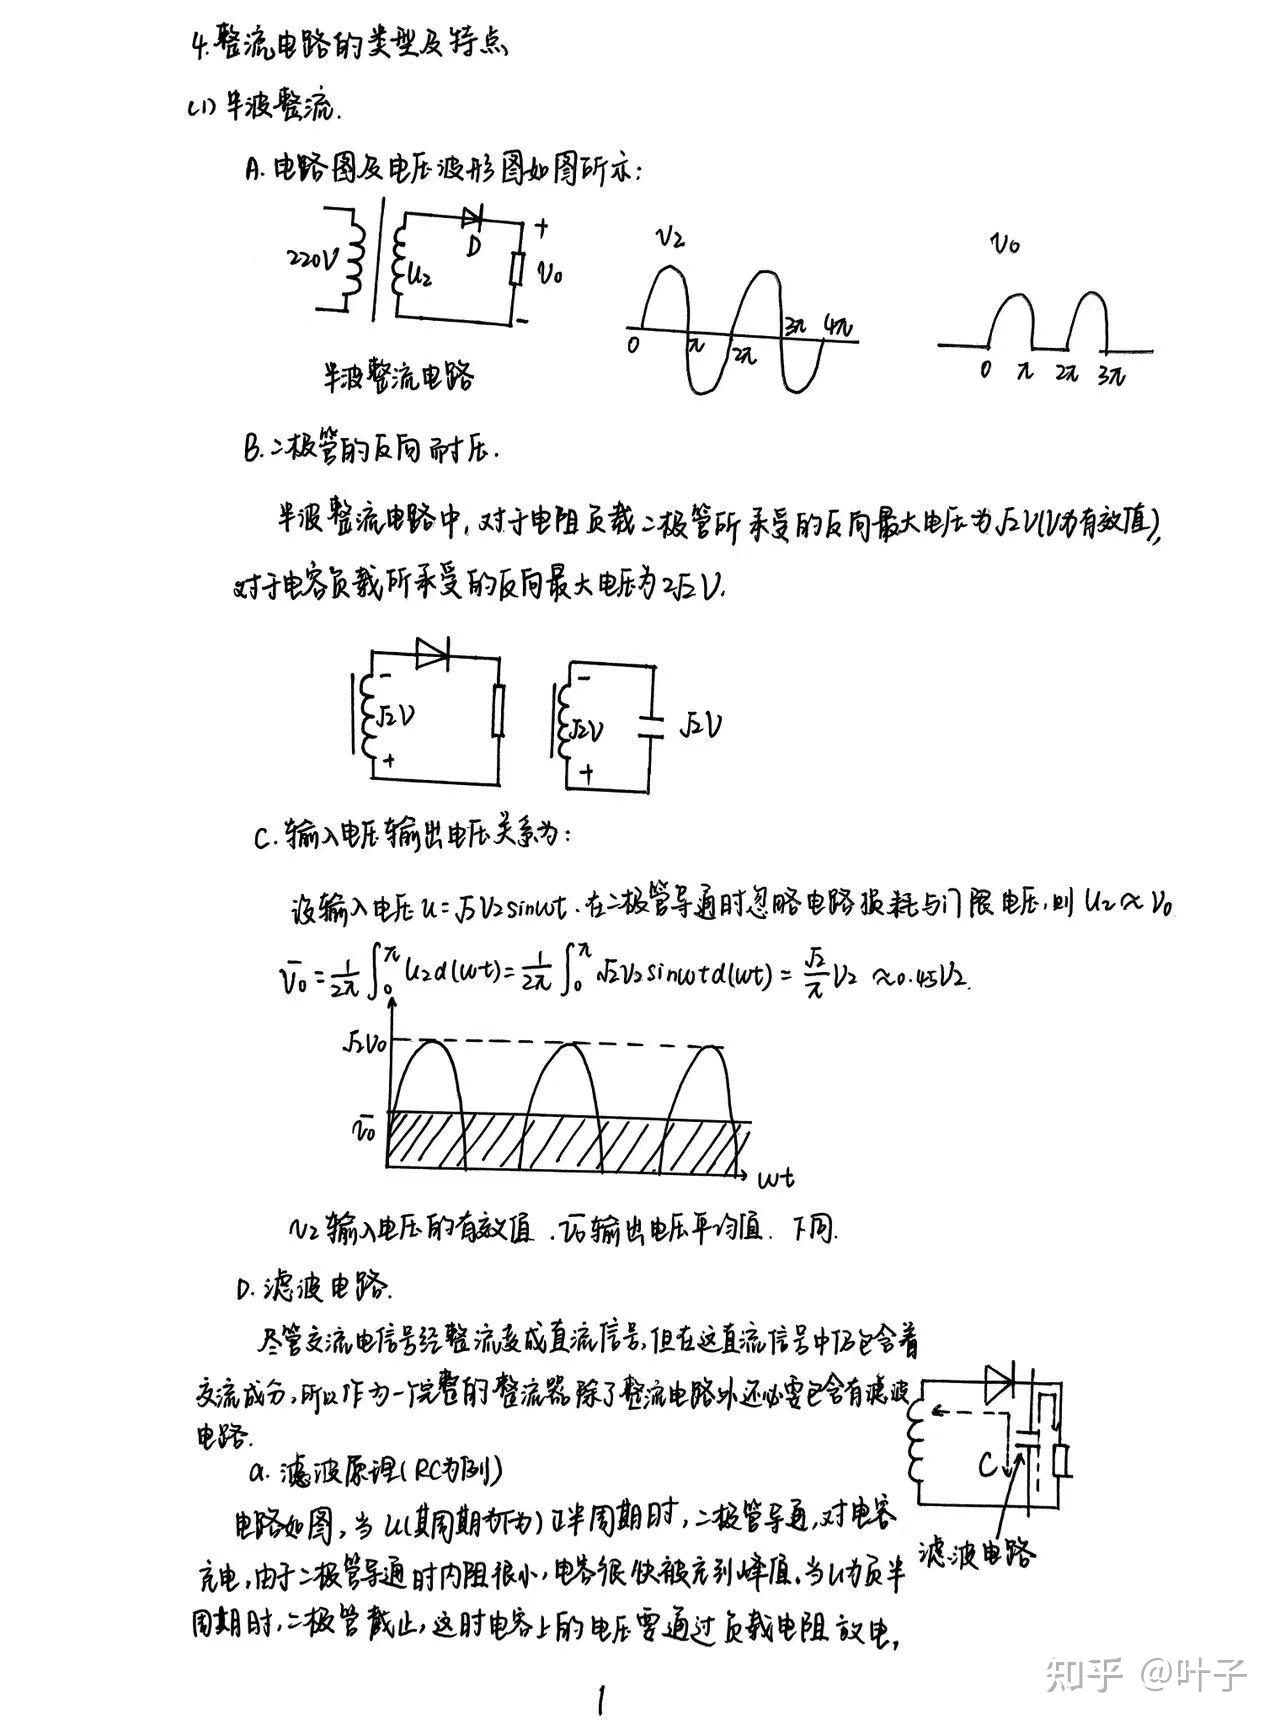 4.整流电路的类型及特点
(1)半波整流.
A.电路图及电压波形图如图所示:
220V U2 D + V0 -
V2
0 π 2π 3π 4π
V0
0 π 2π 3π
半波整流电路
B.二极管的反向耐压.
半波整流电路中,对于电阻负载二极管所承受的反向最大电压为√2V(V为有效值),
对于电容负载所承受的反向最大电压为2√2V.
- √2V +
- √2V + √2V
C.输入电压输出电压关系为:
设输入电压u=√2V2sinωt.在二极管导通时忽略电路损耗与门限电压,则U2≈V0
V̄0=1/2π∫0^π U2d(ωt)=1/2π∫0^π √2V2sinωtd(ωt)=√2/π V2≈0.45V2.
√2V0
V̄0
ωt
V2输入电压的有效值.V̄0输出电压平均值.下同.
D.滤波电路.
尽管交流电信号经整流变成直流信号,但在这直流信号中仍包含着
交流成分,所以作为一个完整的整流器除了整流电路外还必要包含有滤波
电路.
a.滤波原理(RC为例)
C
滤波电路
电路如图,当U(其周期为T为)正半周期时,二极管导通,对电容
充电,由于二极管导通时内阻很小,电容很快被充到峰值.当U为负半
周期时,二极管截止,这时电容上的电压要通过负载电阻放电,
1
知乎 @叶子